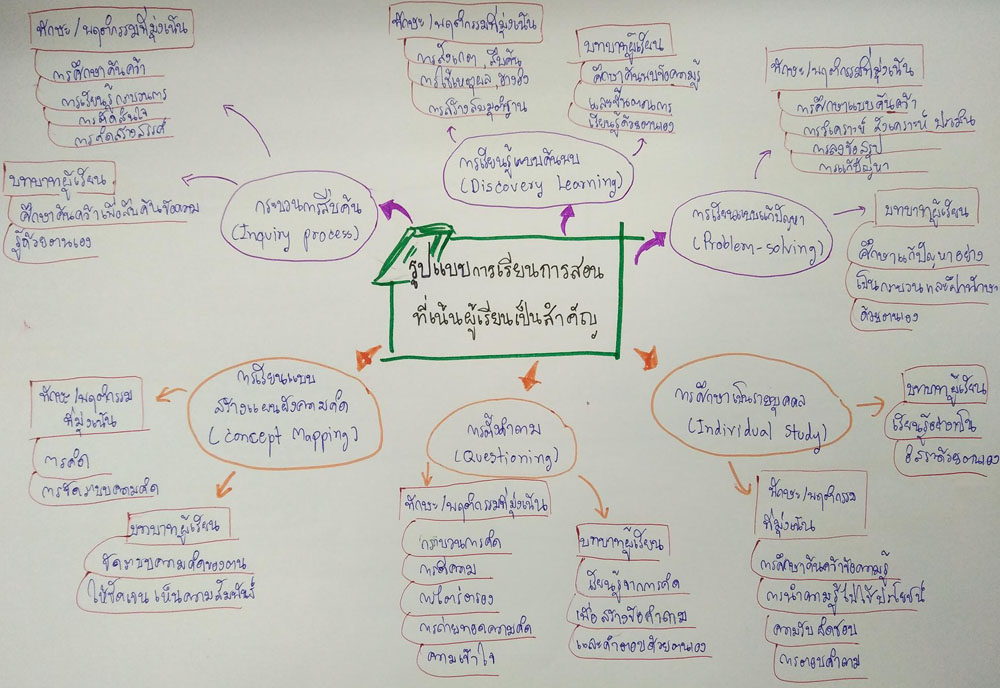 รูปแบบการเรียนการสอน
ที่เน้นผู้เรียนเป็นสำคัญ
กระบวนการสืบค้น
(Inquiry process)
ทักษะ/พฤติกรรมที่มุ่งเน้น
การศึกษาค้นคว้า
การเรียนรู้กระบวนการ
การตัดสินใจ
การคิดสร้างสรรค์
บทบาทผู้เรียน
ศึกษาค้นคว้าเพื่อสืบค้นข้อความ
รู้ด้วยตนเอง
การเรียนรู้แบบค้นพบ
(Discovery Learning)
ทักษะ/พฤติกรรมที่มุ่งเน้น
การสังเกต, สืบค้น
การใช้เหตุผล, อ้างอิง
การสร้างสมมุติฐาน
บทบาทผู้เรียน
ศึกษาค้นพบข้อความรู้
และขั้นตอนการ
เรียนรู้ด้วยตนเอง
การเรียนแบบแก้ปัญหา
(Problem-solving)
ทักษะ/พฤติกรรมที่มุ่งเน้น
การศึกษาแบบค้นคว้า
การวิเคราะห์ สังเคราะห์ ประเมิน
การลงข้อสรุป
การแก้ปัญหา
บทบาทผู้เรียน
ศึกษาแก้ปัญหาอย่าง
เป็นกระบวนและฝึกทักษะ
ด้วยตนเอง
การเรียนแบบ
สร้างแผนผังความคิด
(Concept Mapping)
ทักษะ/พฤติกรรม
ที่มุ่งเน้น
การคิด
การจัดระบบความคิด
บทบาทผู้เรียน
จัดระบบความคิดของตน
ให้ชัดเจน เห็นความสัมพันธ์
การตั้งคำถาม
(Questioning)
ทักษะ/พฤติกรรมที่มุ่งเน้น
กระบวนการคิด
การตีความ
การไตร่ตรอง
การถ่ายทอดความคิด
ความเข้าใจ
บทบาทผู้เรียน
เรียนรู้จากการคิด
เพื่อสร้างข้อคำถาม
และคำตอบด้วยตนเอง
การศึกษาเป็นรายบุคคล
(Individual Study)
บทบาทผู้เรียน
เรียนรู้อย่างเป็น
อิสระด้วยตนเอง
ทักษะ/พฤติกรรม
ที่มุ่งเน้น
การศึกษาค้นคว้าข้อความรู้
การนำความรู้ไปใช้ประโยชน์
ความรับผิดชอบ
การตอบคำถาม